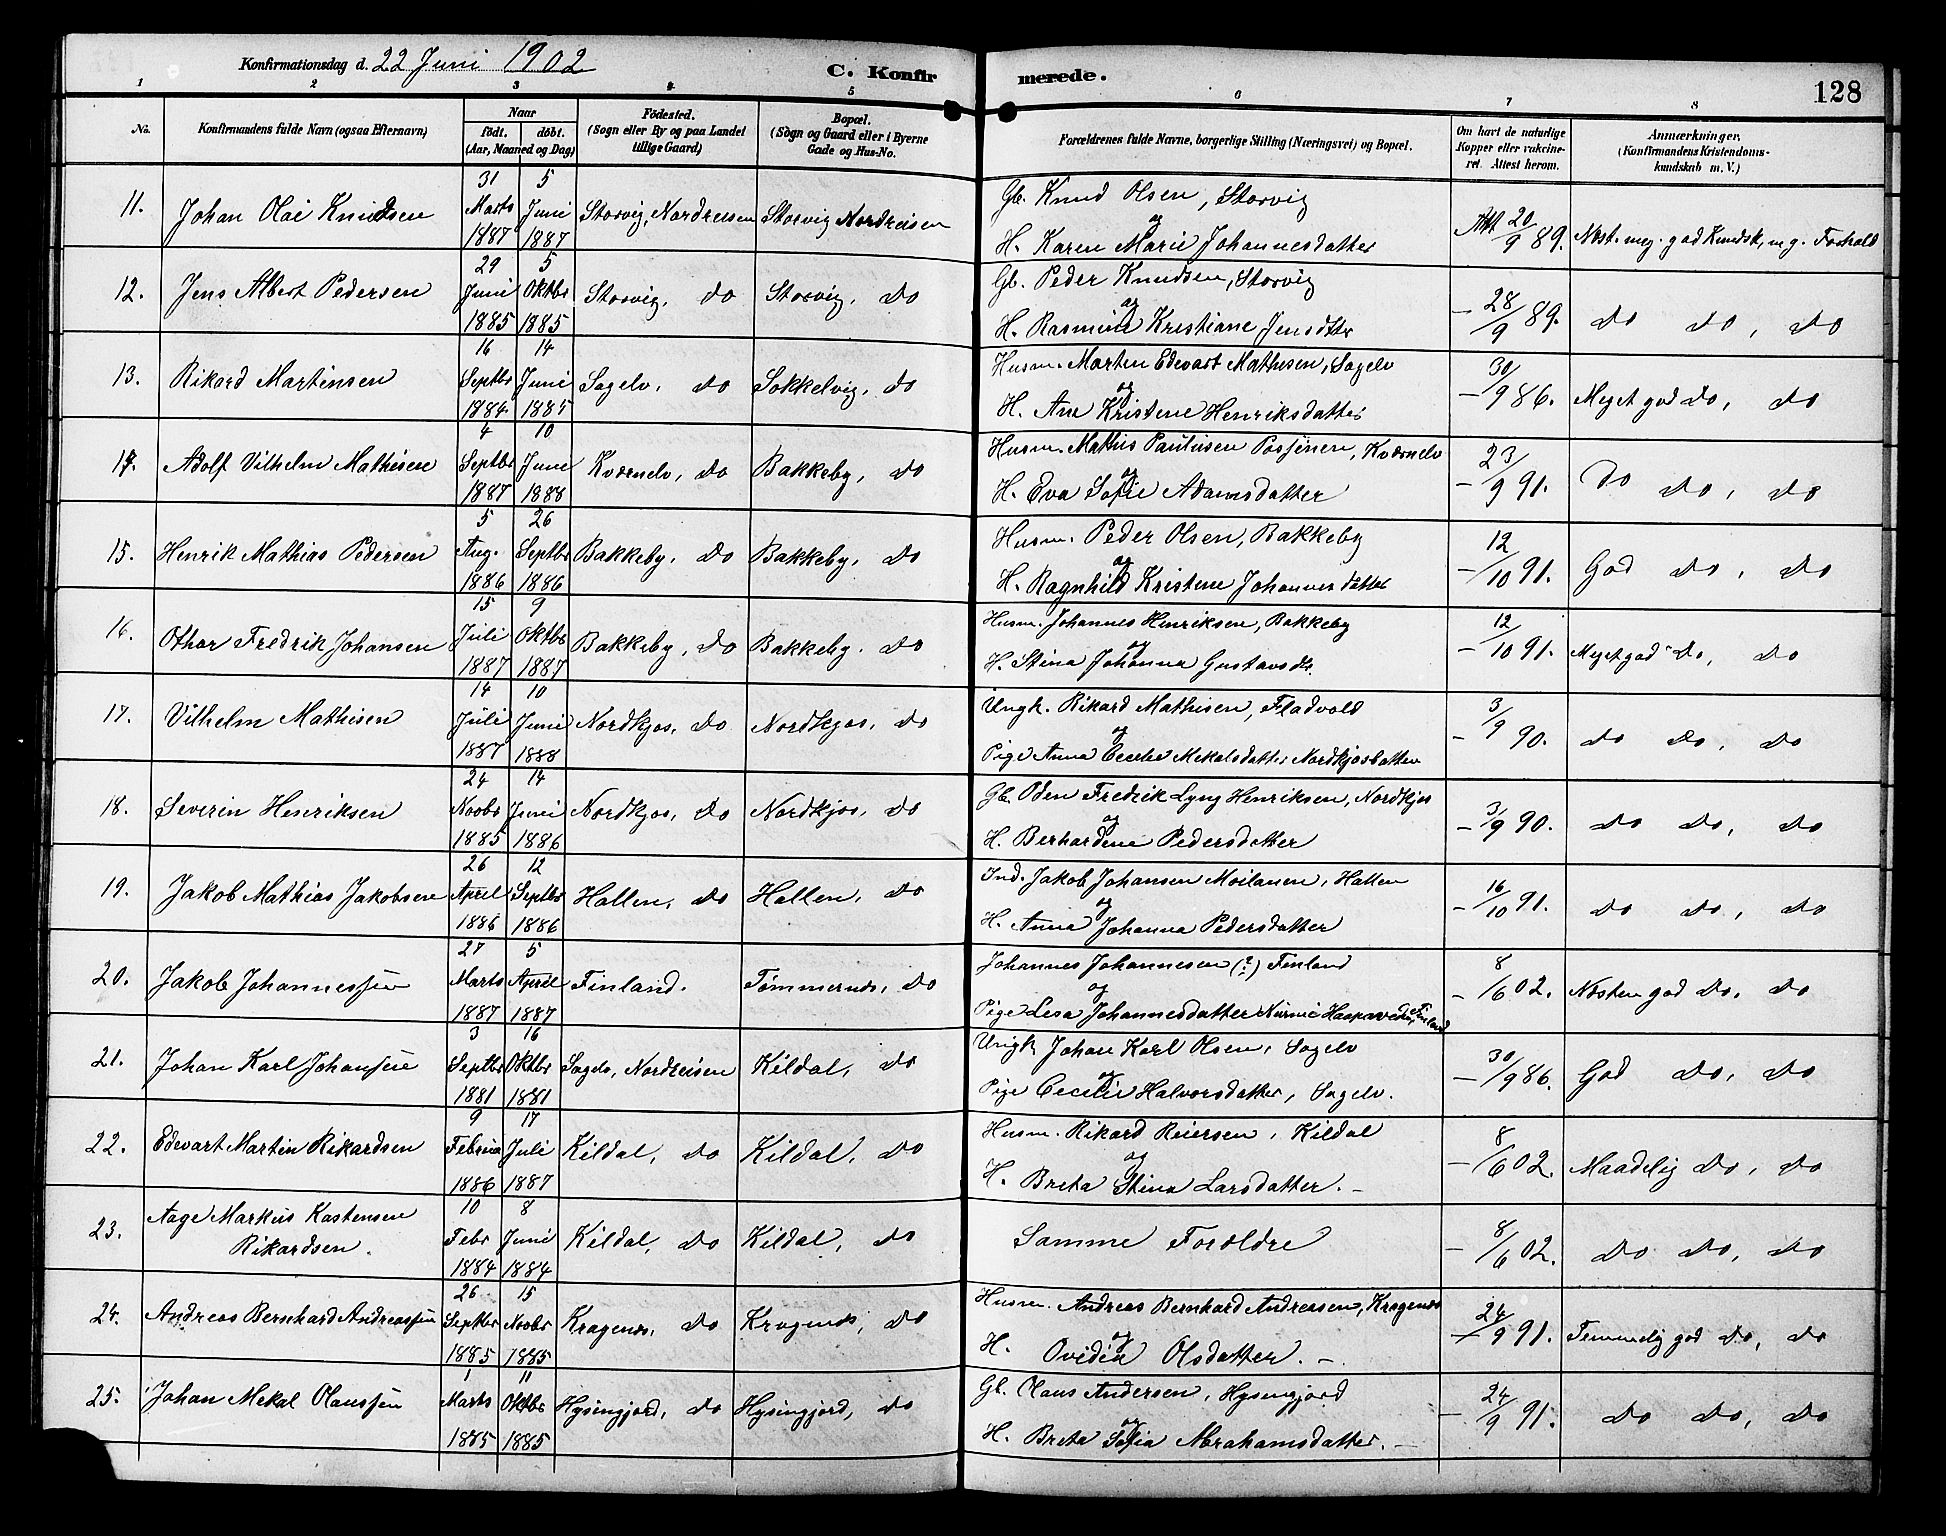 Konfirmationsdag d. 22 Juni 1902
C. Konfirmerede.
128
1 2 3 4 5 6 7 8
No. Konfirmandens fulde Navn (ogsaa Efternavn) Naar født. døbt. (Aar, Maaned og Dag) Fødested. (Sogn eller By og paa Landet tillige Gaard) Bopæl. (Sogn og Gaard eller i Byerne Gade og Hus-No. Forældrenes fulde Navne, borgerlige Stilling (Næringsvei) og Bopæl. Om havt de naturlige Kopper eller vakcineret. Attest herom. Anmærkninger. (Konfirmandens Kristendomskundskab m. V.)
11. Johan Olai Knudsen 31 Marts 1887 5 Juni 1887 Storvig, Nordreisen Storvig Nordreisen Gb. Knud Olsen, Storvig og H. Karen Marie Johannesdatter Att 20/9 89. Næst. meg. god Kundsk, m g. Forhold
12. Jens Albert Pedersen 29 Juni 1885 5 Oktbr 1885 Storvig, do Storvig, do Gb. Peder Knudsen, Storvig og H. Rasmine Kristiane Jensdtr – 28/9 89. do do, do
13. Rikard Martinsen 16 Septbr 1884 14 Juni 1885 Sagelv, do Sokkelvig, do Husm. Morten Edevart Mathisen, Sagelv og H. Ane Kristene Henriksdatter – 30/9 86. Meget god do, do
14. Adolf Vilhelm Mathisen 4 Septbr 1887 10 Juni 1888 Kværnelv, do Bakkeby, do Husm. Mathis Paulusen Posjonen, Kværnelv og H. Eva Sofie Adamsdatter – 23/9 91. Do do, do
15. Henrik Mathias Pedersen 5 Aug. 1886 26 Septbr 1886 Bakkeby, do Bakkeby, do Husm. Peder Olsen, Bakkeby og H. Ragnhild Kristene Johannesdatter – 12/10 91. God do, do
16. Othar Fredrik Johansen 15 Juli 1887 9 Oktbr 1887 Bakkeby, do Bakkeby. do Husm. Johannes Henriksen, Bakkeby og H. Stina Johanna Gustavsdtr. – 12/10 91. Meget god do, do
17. Vilhelm Mathisen 14 Juli 1887 10 Juni 1888 Nordkjos, do Nordkjos, do Ungk. Rikard Mathisen, Fladvold og Pige Anna Cecelie Mekalsdatter Nordkjosbotten – 3/9 90. do do, do
18. Severin Henriksen 24 Novbr 1885 14 Juni 1886 Nordkjos, do Nordkjos, do Gb. Oden Fredrik Lyng Henriksen, Nordkjos og H. Berhardine Pedersdatter – 3/9 90. do do, do
19. Jakob Mathias Jakobsen 26 April 1886 12 Septbr 1886 Hallen, do Hallen, do Ind. Jakob Johansen Moilanen, Hallen og H. Anna Johanna Pedersdatter – 16/10 91. do do, do
20. Jakob Johannessen 27 Marts 1887 5 April 1887 Finland. Tømmernes, do Johannes Johannesen (?) Finland og Pige Lesa Johannesdatter Haapavedin, Finland – 8/6 02. Næsten god do. do
21. Johan Karl Johansen 3 Septbr 1881 16 Oktbr 1881 Sagelv, Nordreisen Kildal, do Ungk Johan Karl Olsen, Sagelv og Pige Cecelie Halvorsdatter, Sagelv. – 30/9 86. God do, do
22. Edevart Martin Rikardsen 9 Februar 1886 17 Juli 1887 Kildal, do Kildal, do Husm. Rikard Reiersen, Kildal og H. Breta Stina Larsdatter. – – 8/6 02. Maadelig do, do
23. Aage Markus Kastensen Rikardsen. 10 Febr 1884 8 Juni 1884 Kildal, do Kildal, do Samme Forældre – 8/6 02. do do, do
24. Andreas Bernhard Andreassen 26 Septbr 1885 15 Novbr 1885 Kragenes, do Kragenes, do Husm. Andreas Bernhard Andreasen, Kragenes og H. Ovidia Olsdatter. – – 24/9 91. Temmelig god do, do
25. Johan Mekal Olaussen 1 Marts 1885 11 Oktbr 1885 Hysingjord, do Hysingjord, do Gb. Olaus Andersen, Hysingjord og H. Breta Sofia Abrahamsdatter. – – 24/9 91. do do, do